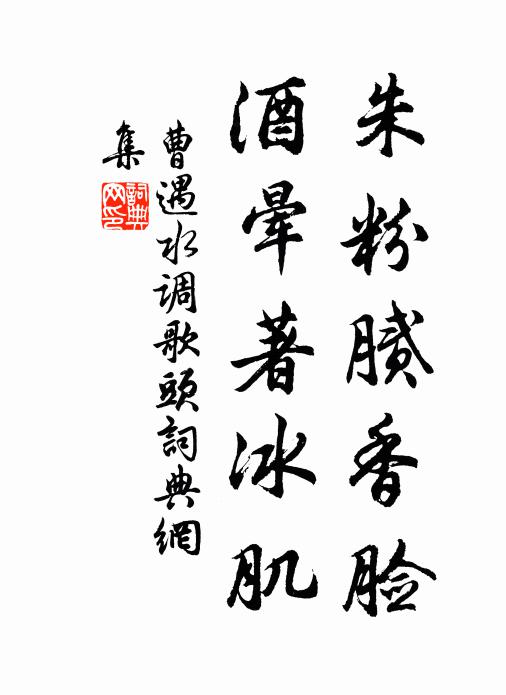 朱粉腻香脸
酒晕著冰肌
曹遇水调歌頭詞典網
集
詞典网印